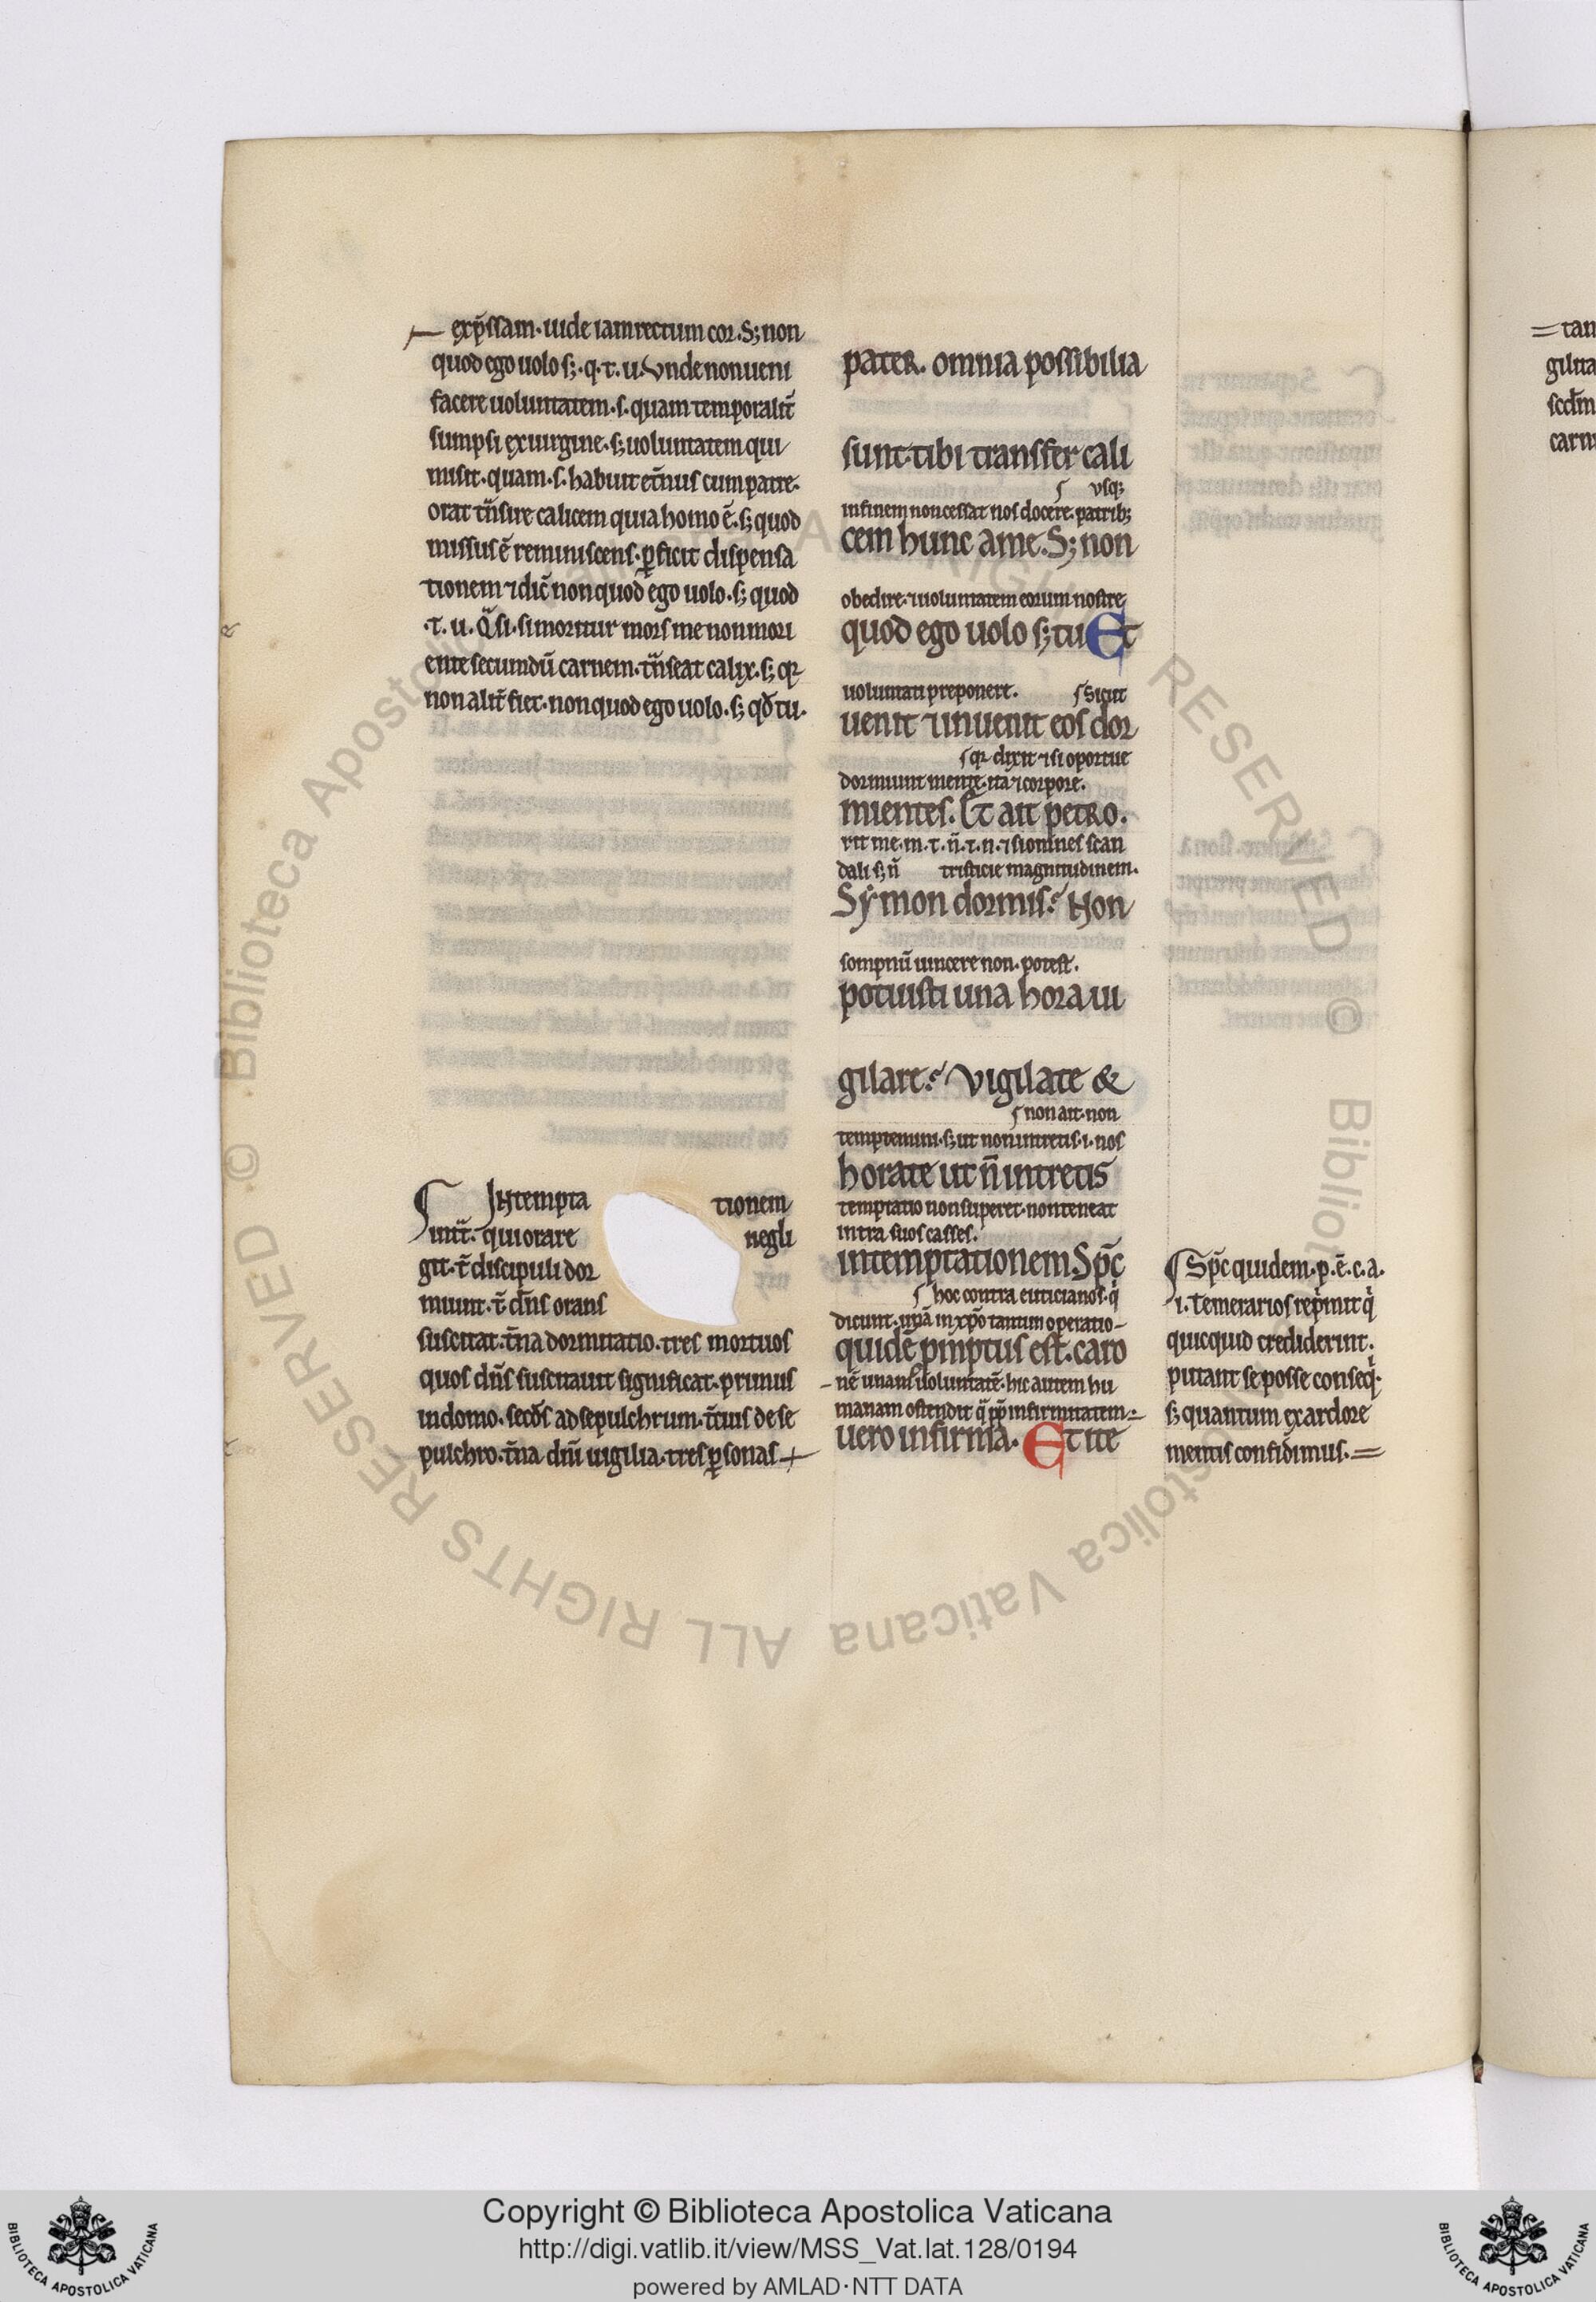 exp̄ssam. uide iam rectum cor. S; non
quod ego uolo s;. q. t. u. Vnde non ueni
facere uoluntatem. s. quam temporalit̄
sumpsi ex uirgine. s; uoluntatem qui
misit. quam. s. habuit et̄nus cum patre.
orat t̄nsire calicem quia homo ē. s; quod
missus ē reminiscens. ꝑficit dispensa
tionem ⁊ dic̄ non quod ego uolo. s; quod
.t. u. Q̄si. si moritur mors me non mori
ente secundū carnem. t̄nseat calix. s; qr
non alit̄ fiet. non quod ego uolo. s; qd̄ tu.
INtempta tionem
int̄. qui orare negli
git. t̄ discipuli dor
miunt. t̄ dn̄s orans
suscitat. t̄na dormitatio. tres mortuos
quos dn̄s suscitauit significat. primus
in domo. secd̄s ad sepulchrum. t̄cius de se
pulchro. t̄na dn̄i uigilia. tres ꝑsonas
pater. omnia possibilia
sunt. tibi transfer cali
usq;
in finem non cessat nos docere. patrib;
cem hunc a me. S; non
obedire. ⁊ uoluntatem eorum nostre
quod ego uolo s; tu Et
uoluntati preponere. sicut
uenit ⁊ inuenit eos dor
qr dixit ⁊ si oportue
dormiunt mente. ita ⁊ corpore.
mientes. Et ait petro.
rit me. m. t. n̄. t. n. ⁊ si omnes scan
dali s; n̄ tristicie magnitudinem.
Symon dormis? Non
sompnū uincere non. potest.
potuisti una hora ui
gilare? Vigilate &
non ait. non
temptemini. s; ut non intretis. i. nos
horate ut n̄ intretis
temptatio non superet. non teneat
intra suos casses.
in temptationem. Sp̄c
hoc contra euticianos. q
dicunt. unā in xp̄o tantum operatio
quidē pmptus est. caro
nē unam uoluntatē. hic autem hu
manam ostendit q̄ infirmitatem
uero infirma. Et ite
Sp̄c quidem. p. ē. c. a.
i. Temerarios rep̄mit q
quicquid crediderint.
putant se posse conseq.
s; quantum ex ardore
mentis confidimus.
tan
gilita
scdm
carn
Copyright © Biblioteca Apostolica Vaticana
http://digi.vatlib.it/view/MSS_Vat.lat.128/0194
powered by AMLAD·NTT DATA